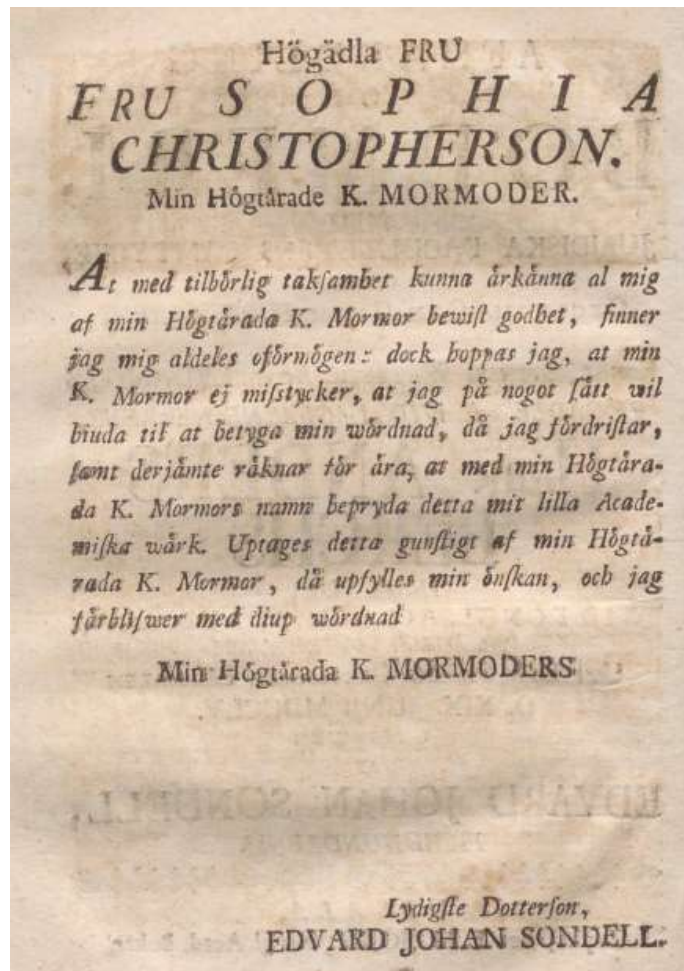 Högädla FRU
FRU SOPHIA
CHRISTOPHERSON.
Min Högtårade K. MORMODER.
At med tilbörlig takſamhet kunna årkånna al mig
af min Högtårada K. Mormor bewiſt godhet, finner
jag mig aldeles oförmögen: dock hoppas jag, at min
K. Mormor ej miſstycker, at jag på nogot ſått wil
biuda til at betyga min wördnad, då jag fördriſtar,
ſamt derjåmte råknar för åra, at med min Högtåra-
da K. Mormors namn bepryda detta mit lilla Acade-
miſka wårk. Uptages detta gunſtigt af min Högtå-
rada K. Mormor, då upfylles min önſkan, och jag
fårbliſwer med diup wördnad
Min Högtårada K. MORMODERS
Lydigſte Dotterſon,
EDVARD JOHAN SONDELL.